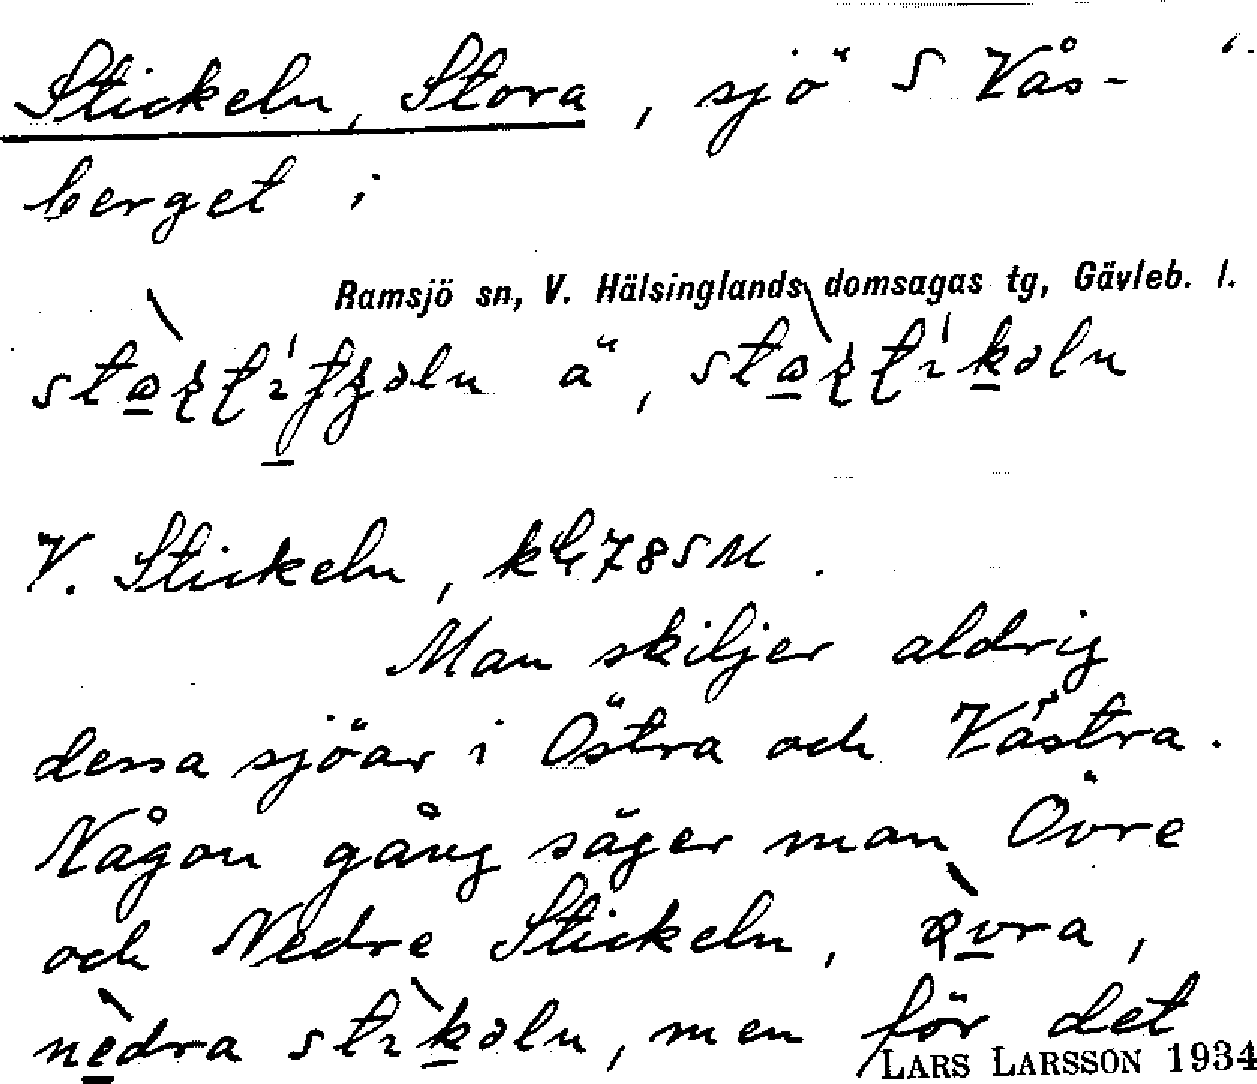 Stickeln, Stora, sjö S Vås-
berget i
Ramsjö sn, V. Hälsinglands domsagas tg, Gävleb. l.
ä,
V. Stickeln, kbl 78 SM.
Man skiljer aldrig
dessa sjöar i Östra och Västra.
Någon gång säger man Övre
och Nedre Stickeln,
men för det
LARS LARSSON 1934